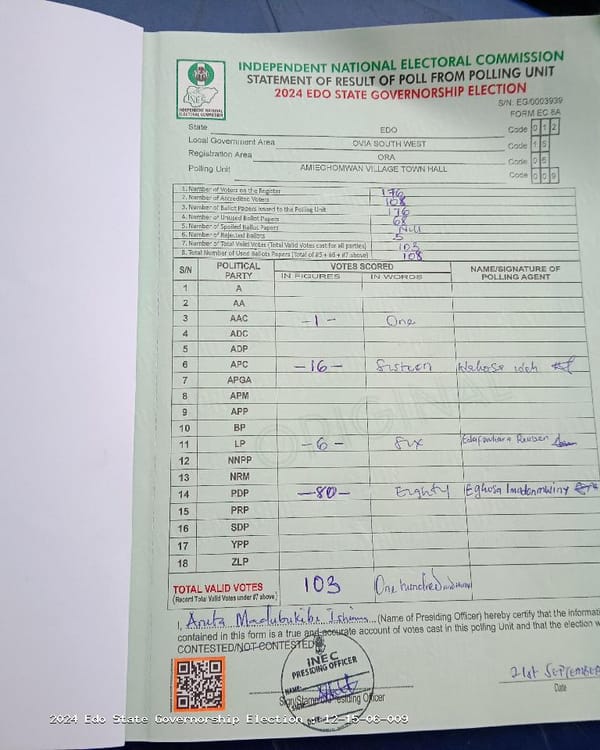 INDEPENDENT NATIONAL ELECTORAL COMMISSION
STATEMENT OF RESULT OF POLL FROM POLLING UNIT
2024 EDO STATE GOVERNORSHIP ELECTION
S/N: EG/0003939
FORM EC 8A
INEC
INDEPENDENT NATIONAL ELECTORAL COMMISSION
State EDO Code 0 1 2
Local Government Area OVIA SOUTH WEST Code 1 5
Registration Area ORA Code 0 6
Polling Unit AMIECHOMWAN VILLAGE TOWN HALL Code 0 0 9
1. Number of Voters on the Register 176
2. Number of Accredited Voters 108
3. Number of Ballot Papers Issued to the Polling Unit 176
4. Number of Unused Ballot Papers 68
5. Number of Spoiled Ballot Papers Nil
6. Number of Rejected Ballots 5
7. Number of Total Valid Votes (Total Valid Votes cast for all parties) 103
8. Total Number of Used Ballots Papers (Total of #5 + #6 + #7 above) 108
S/N POLITICAL PARTY VOTES SCORED NAME/SIGNATURE OF POLLING AGENT
IN FIGURES IN WORDS
1 A
2 AA
3 AAC -1- One
4 ADC
5 ADP
6 APC -16- Sixteen
7 APGA
8 APM
9 APP
10 BP
11 LP -6- Six
12 NNPP
13 NRM
14 PDP -80- Eighty Eghosa
15 PRP
16 SDP
17 YPP
18 ZLP
TOTAL VALID VOTES 103 One hundred
(Record Total Valid Votes under #7 above)
I, (Name of Presiding Officer) hereby certify that the informati
contained in this form is a true and accurate account of votes cast in this polling Unit and that the election w
CONTESTED/NOT CONTESTED
INEC
PRESIDING OFFICER
NAME:
Sign/Stamp Presiding Officer
21st SEPTEMBER
Date
2024 Edo State Governorship Election - 12-15-06-009